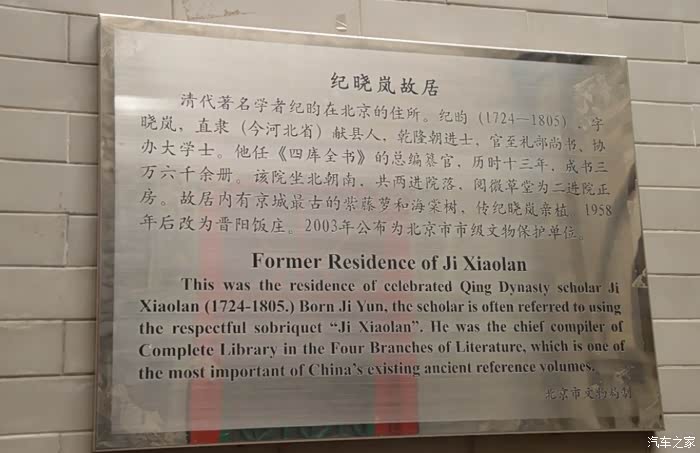 纪晓岚故居
清代著名学者纪昀在北京的住所。纪昀（1724—1805），字
晓岚，直隶（今河北省）献县人，乾隆朝进士，官至礼部尚书、协
办大学士。他任《四库全书》的总编纂官，历时十三年，成书三
万六千余册。该院坐北朝南，共两进院落，阅微草堂为二进院正
房。故居内有京城最古的紫藤萝和海棠树，传纪晓岚亲植。1958
年后改为晋阳饭庄。2003年公布为北京市市级文物保护单位。
Former Residence of Ji Xiaolan
This was the residence of celebrated Qing Dynasty scholar Ji
Xiaolan (1724-1805.) Born Ji Yun, the scholar is often referred to using
the respectful sobriquet “Ji Xiaolan”. He was the chief compiler of
Complete Library in the Four Branches of Literature, which is one of
the most important of China's existing ancient reference volumes.
北京市文物局制
汽车之家